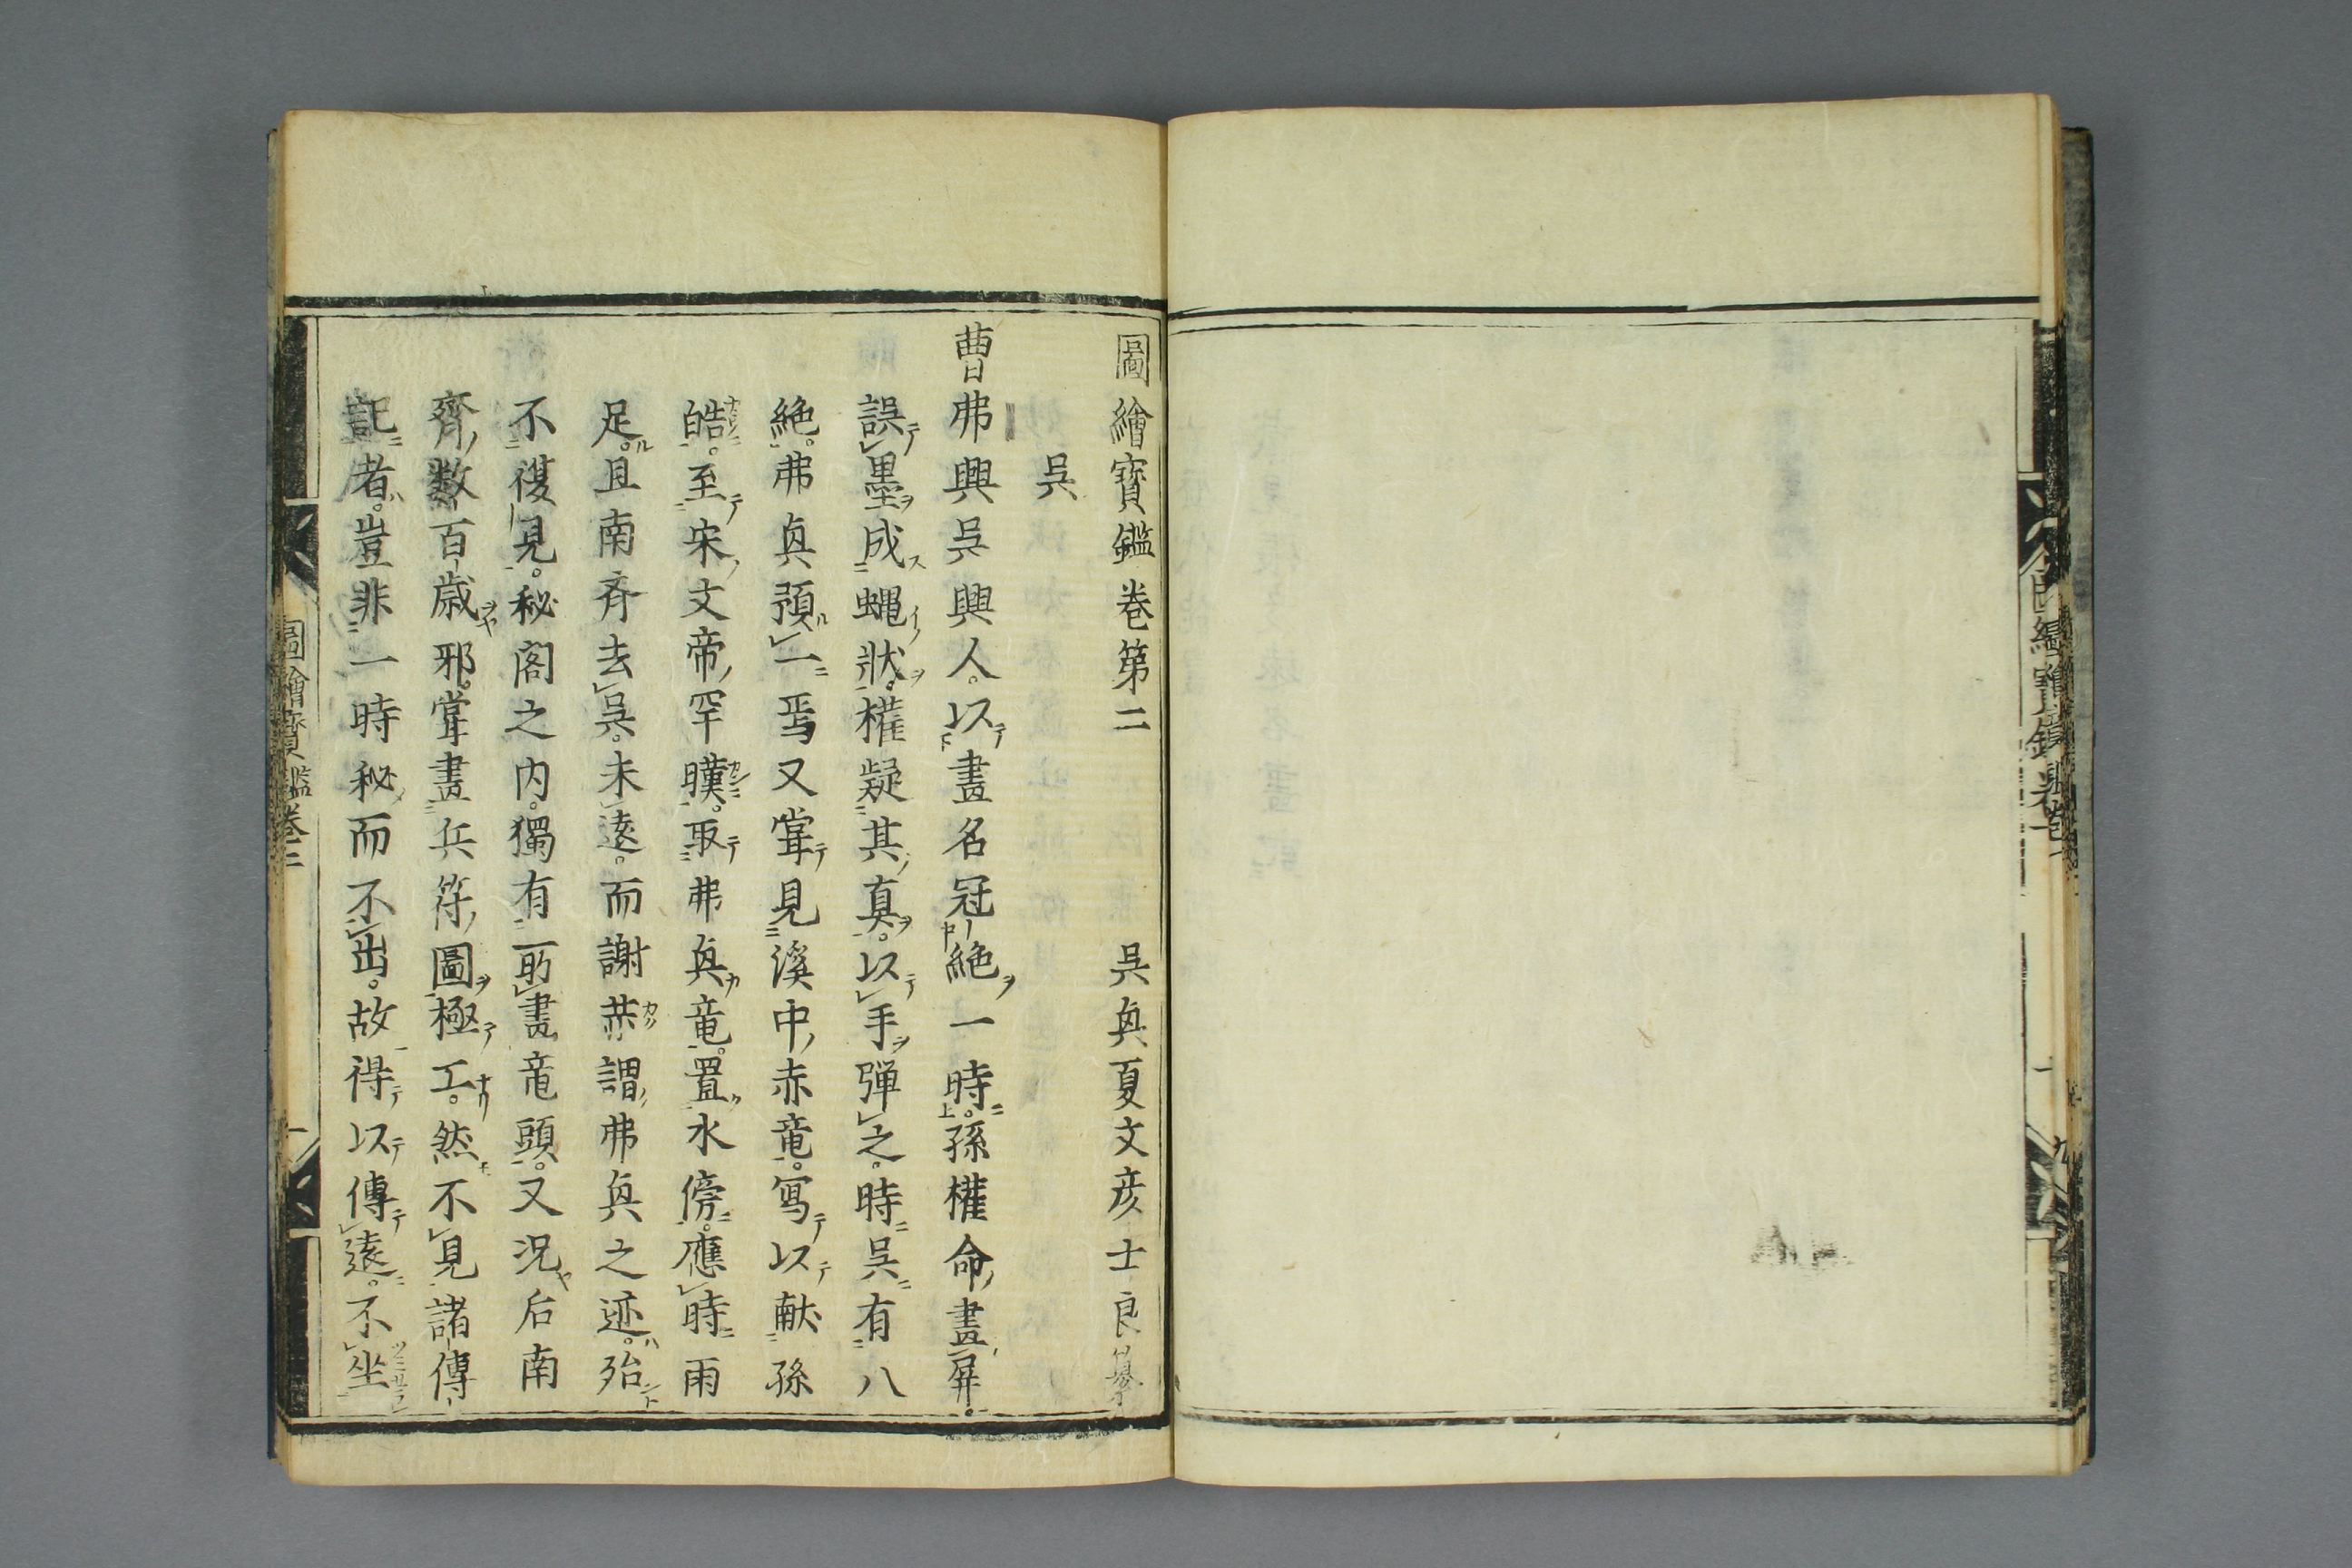 圖繪寶鑑卷第二　呉興夏文彦士良纂
呉
曹弗興呉興人。以畫名冠絶一時。孫權命畫屏。
誤墨成蝿狀。權疑其真。以手弾之。時呉有八
絶。弗興預一焉又甞見溪中赤竜。寫以献孫
皓。至宋文帝罕暵。取弗興竜置水傍。應時雨
足。且南斉去呉。未遠。而謝赫謂弗興之迹。殆
不復見。秘閣之内。獨有所畫竜頭。又况后南
齊数百歳邪。甞畫兵符圖極工。然不見諸傳
記者。豈非一時秘而不出。故得以傳遠。不坐
圖繪寶鑑卷二
一